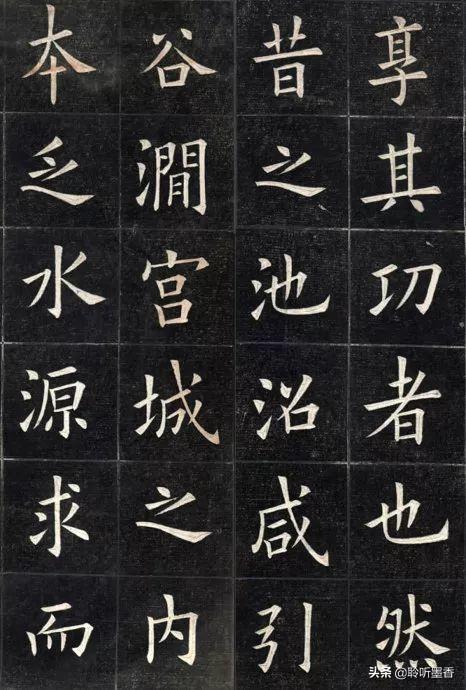 享其功者也然
昔之池沼咸引
谷澗宫城之内
本乏水源求而
头条 @聆听墨香